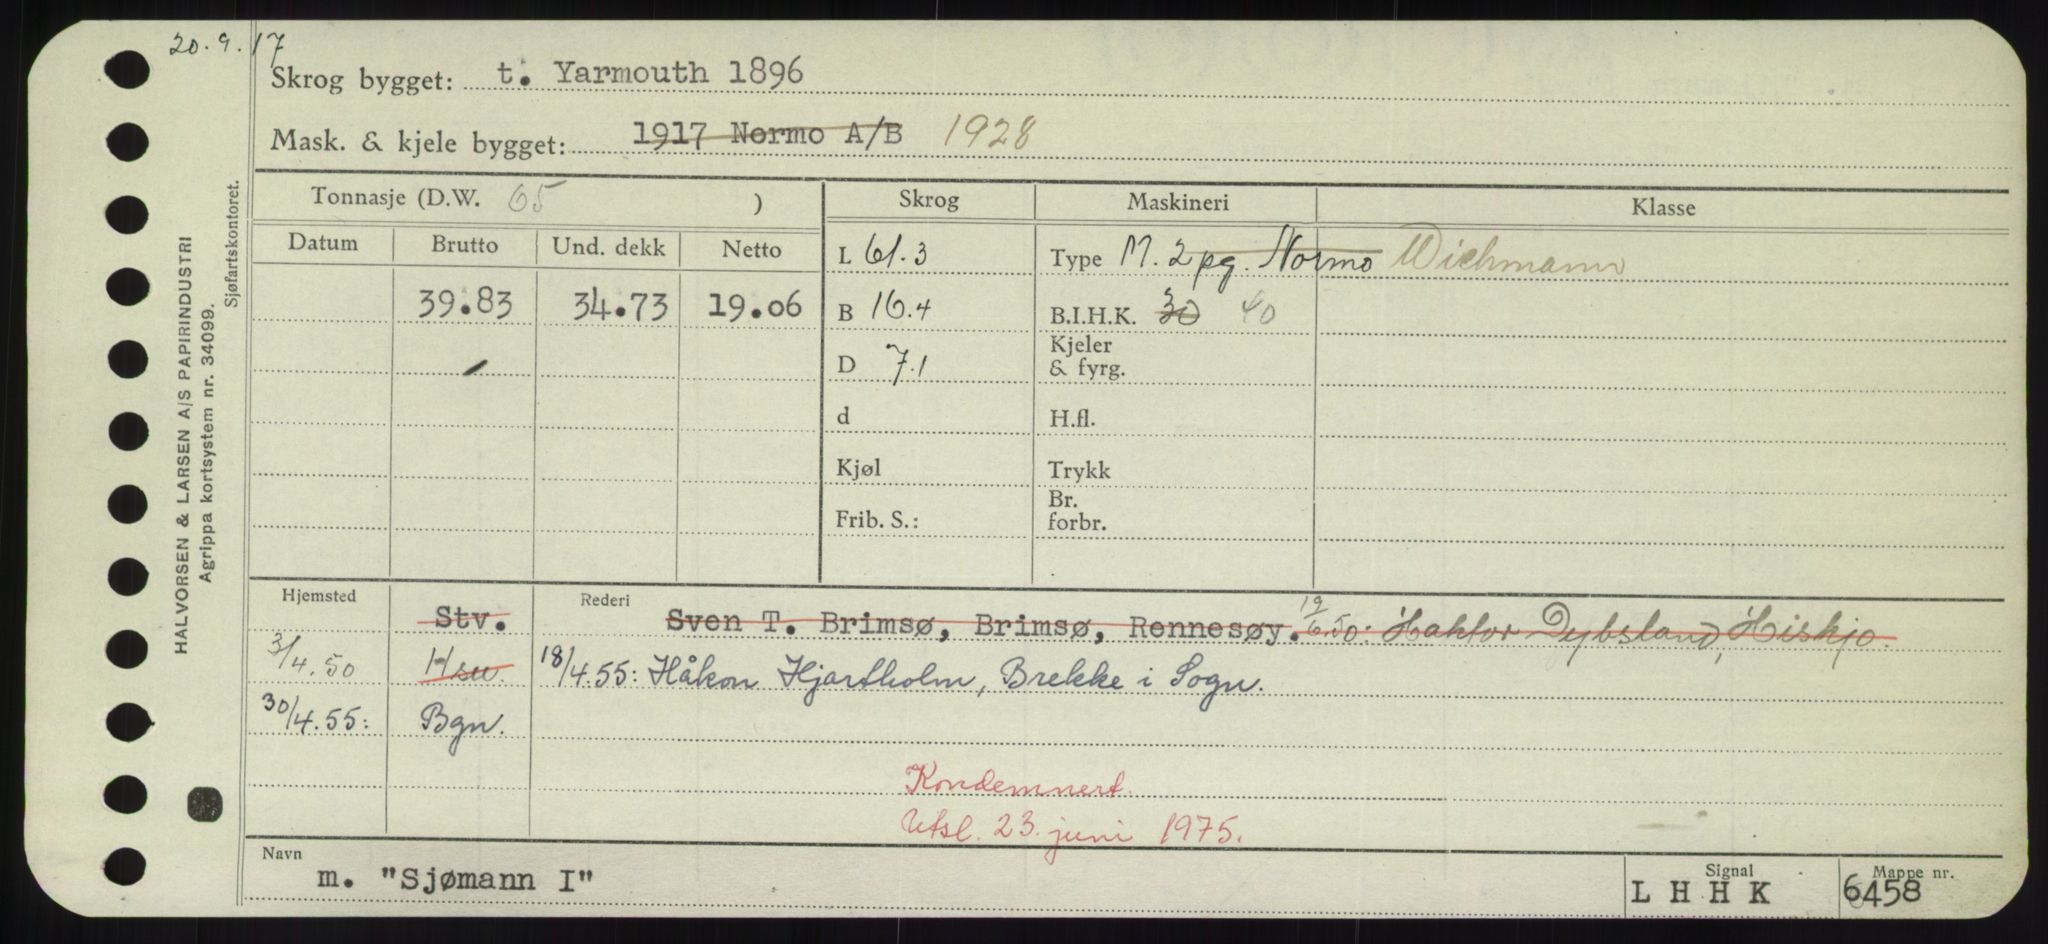 20.9.17
Skrog bygget: t. Yarmouth 1896
Mask. & kjele bygget: 1917 Normo A/B 1928
Tonnasje (D.W. 65 )
Skrog
Maskineri
Klasse
Datum Brutto Und. dekk Netto
39.83 34.73 19.06
L 61.3
B 16.4
D 7.1
d
Kjøl
Frib. S.:
Type M. 2 pg. Normo Wichmann
B.I.H.K. 30 40
Kjeler
& fyrg.
H.fl.
Trykk
Br.
forbr.
Hjemsted Rederi
Stv. Sven T. Brimsø, Brimsø, Rennesøy. 19/6.50: Haktor Dybsland, Hiskjo.
3/4.50 Hsu 18/4.55: Håkon Hjartholm, Brekke i Sogn.
30/4.55: Bgn.
Kondemnert.
Utsl. 23. juni 1975.
Navn
m. "Sjømann I"
Signal
L H H K
Mappe nr.
6458
HALVORSEN & LARSEN A/S PAPIRINDUSTRI
Agrippa kortsystem nr. 34099.
Sjøfartskontoret.